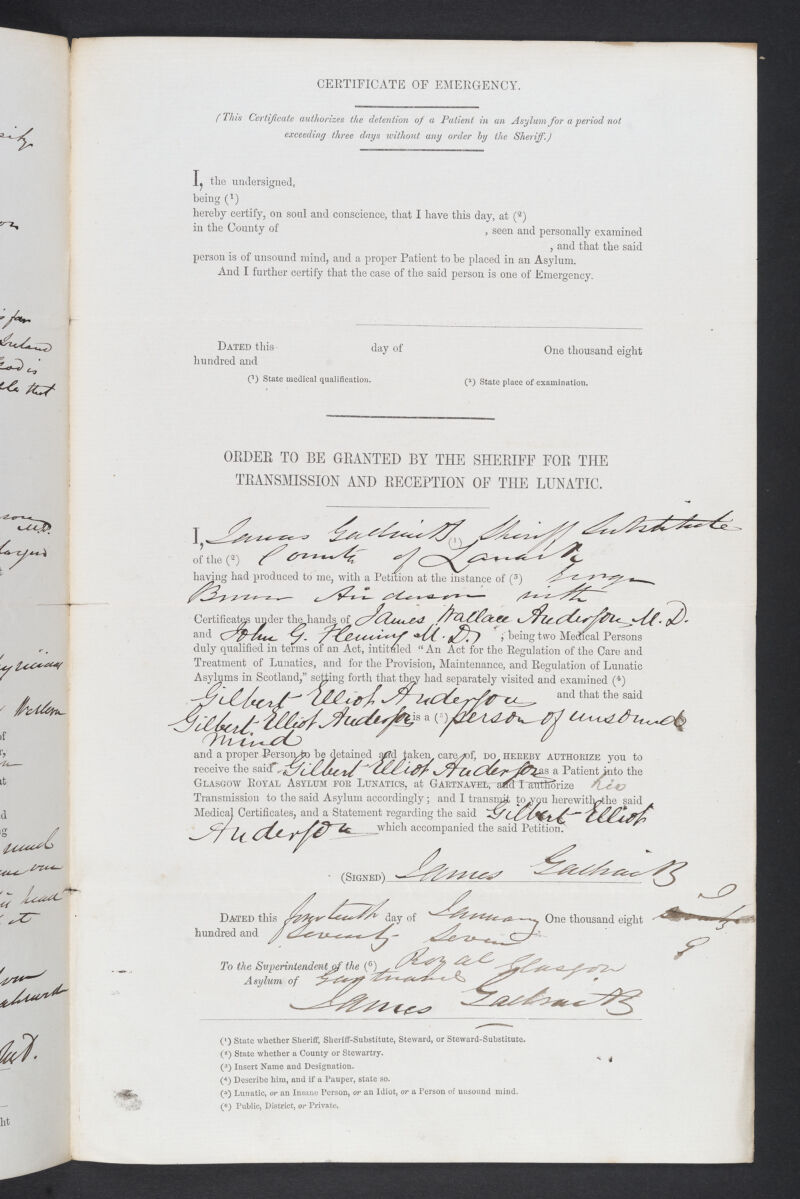 CERTIFICATE OF EMERGENCY.
(This Certificate authorizes the detention of a Patient in an Asylum for a period not
exceeding three days without any order by the Sheriff.)
I, the undersigned,
being (¹)
hereby certify, on soul and conscience, that I have this day, at (²)
in the County of , seen and personally examined
, and that the said
person is of unsound mind, and a proper Patient to be placed in an Asylum.
And I further certify that the case of the said person is one of Emergency.
DATED this day of One thousand eight
hundred and
(¹) State medical qualification. (²) State place of examination.
ORDER TO BE GRANTED BY THE SHERIFF FOR THE
TRANSMISSION AND RECEPTION OF THE LUNATIC.
I, James Galbraith (¹) Sheriff Substitute
of the (²) County of Lanark
having had produced to me, with a Petition at the instance of (³) George
Brown Anderson with
Certificates under the hands of James Wallace Anderson, M.D.
and John G. Fleming M.D. , being two Medical Persons
duly qualified in terms of an Act, intituled "An Act for the Regulation of the Care and
Treatment of Lunatics, and for the Provision, Maintenance, and Regulation of Lunatic
Asylums in Scotland," setting forth that they had separately visited and examined (⁴)
Gilbert Elliot Anderson and that the said
Gilbert Elliot Anderson is a (⁵) person of unsound
mind
and a proper Person to be detained and taken care of, DO HEREBY AUTHORIZE you to
receive the said Gilbert Elliot Anderson as a Patient into the
GLASGOW ROYAL ASYLUM FOR LUNATICS, at GARTNAVEL, and I authorize his
Transmission to the said Asylum accordingly; and I transmit to you herewith the said
Medical Certificates, and a Statement regarding the said Gilbert Elliot
Anderson which accompanied the said Petition.
(SIGNED) James Galbraith
DATED this fourteenth day of January One thousand eight
hundred and seventy seven
To the Superintendent of the (⁶) Royal Glasgow
Asylum of Gartnavel
James Galbraith
(¹) State whether Sheriff, Sheriff-Substitute, Steward, or Steward-Substitute.
(²) State whether a County or Stewartry.
(³) Insert Name and Designation.
(⁴) Describe him, and if a Pauper, state so.
(⁵) Lunatic, or an Insane Person, or an Idiot, or a Person of unsound mind.
(⁶) Public, District, or Private.